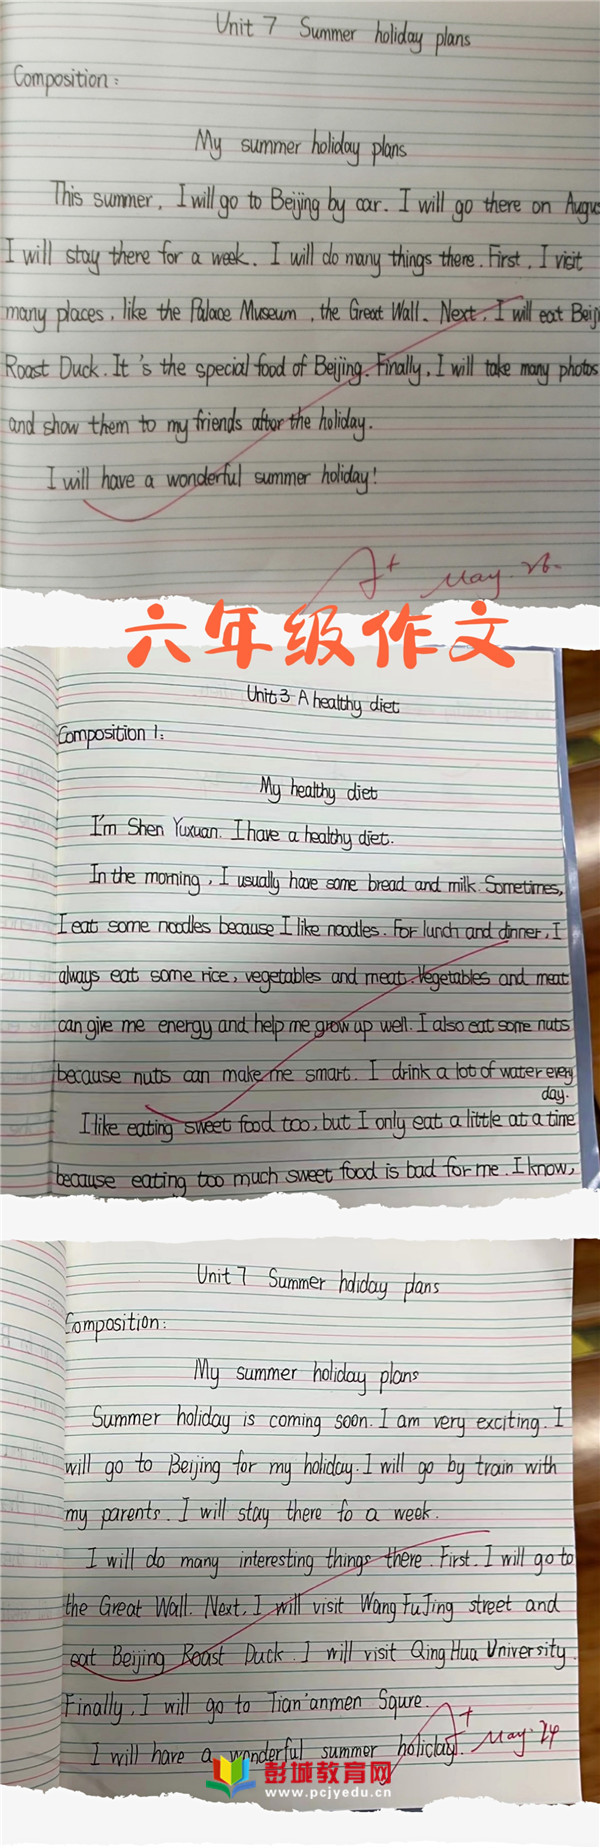 Unit 7 Summer holiday plans
Composition:
My summer holiday plans
This summer, I will go to Beijing by car. I will go there on Augus
I will stay there for a week. I will do many things there. First, I visit
many places, like the Palace Museum, the Great Wall. Next, I will eat Beiji
Roast Duck. It's the special food of Beijing. Finally, I will take many photos
and show them to my friends after the holiday.
I will have a wonderful summer holiday!
A+ May. 26.
六年级作文
Unit 3 A healthy diet
Composition 1:
My healthy diet
I'm Shen Yuxuan. I have a healthy diet.
In the morning, I usually have some bread and milk. Sometimes,
I eat some noodles because I like noodles. For lunch and dinner, I
always eat some rice, vegetables and meat. Vegetables and meat
can give me energy and help me grow up well. I also eat some nuts
because nuts can make me smart. I drink a lot of water every
day.
I like eating sweet food too, but I only eat a little at a time
because eating too much sweet food is bad for me. I know,
Unit 7 Summer holiday plans
Composition:
My summer holiday plans
Summer holiday is coming soon. I am very exciting. I
will go to Beijing for my holiday. I will go by train with
my parents. I will stay there fo a week.
I will do many interesting things there. First. I will go to
the Great Wall. Next, I will visit Wang FuJing street and
eat Beijing Roast Duck. I will visit Qing Hua University.
Finally, I will go to Tian'anmen Squre.
I will have a wonderful summer holiday.
A+ May. 24
彭城教育网
www.pcjyedu.cn